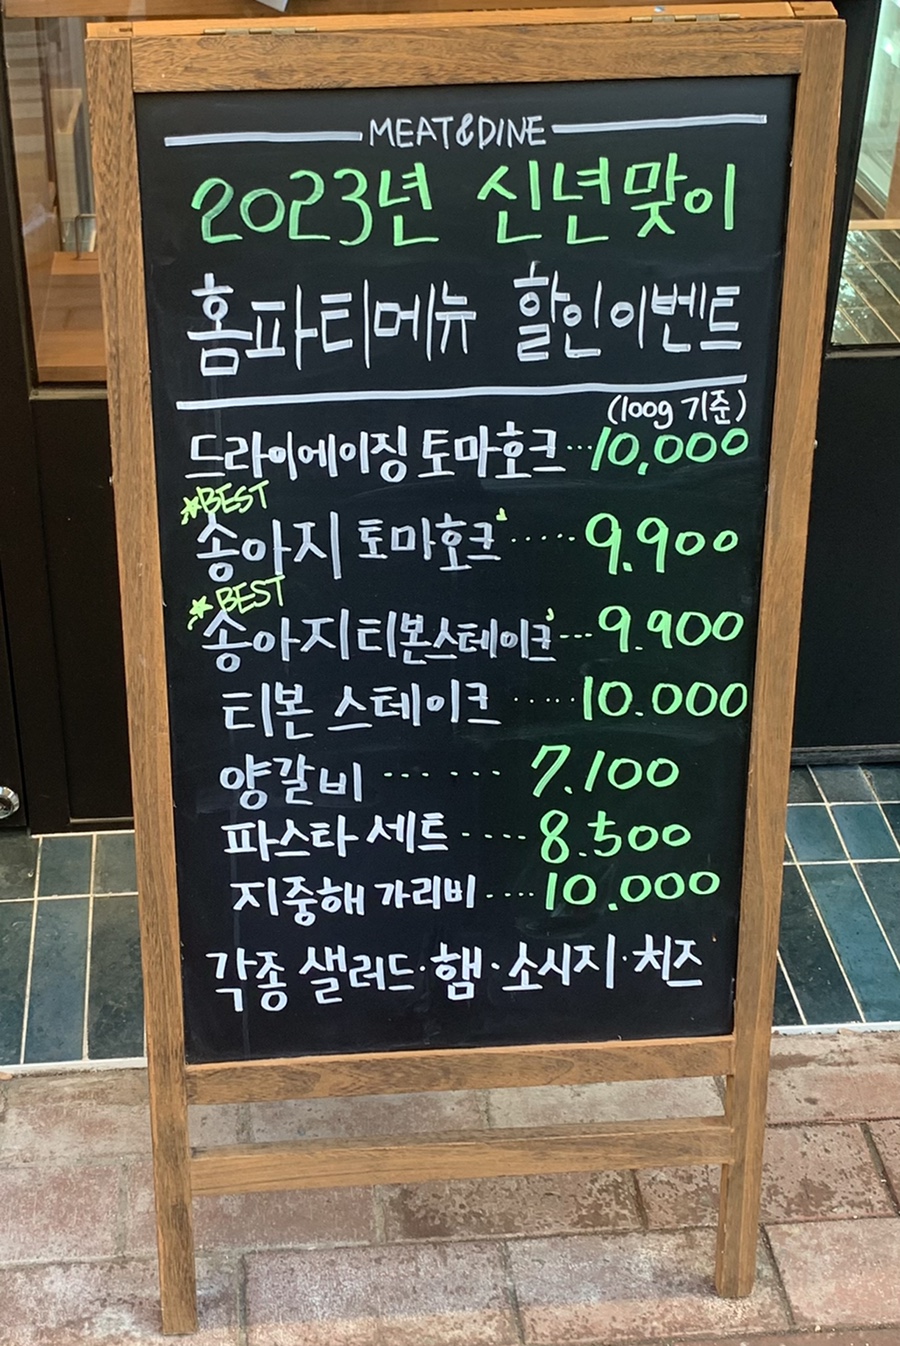 MEAT&DINE
2023년 신년맞이
홈파티메뉴 할인이벤트
(100g 기준)
드라이에이징 토마호크···10,000
*BEST
송아지 토마호크·····9.900
*BEST
송아지티본스테이크---9.900
티본 스테이크·····10.000
양갈비 ------ 7.100
파스타 세트----8.500
지중해 가리비----10.000
각종 샐러드·햄·소시지·치즈